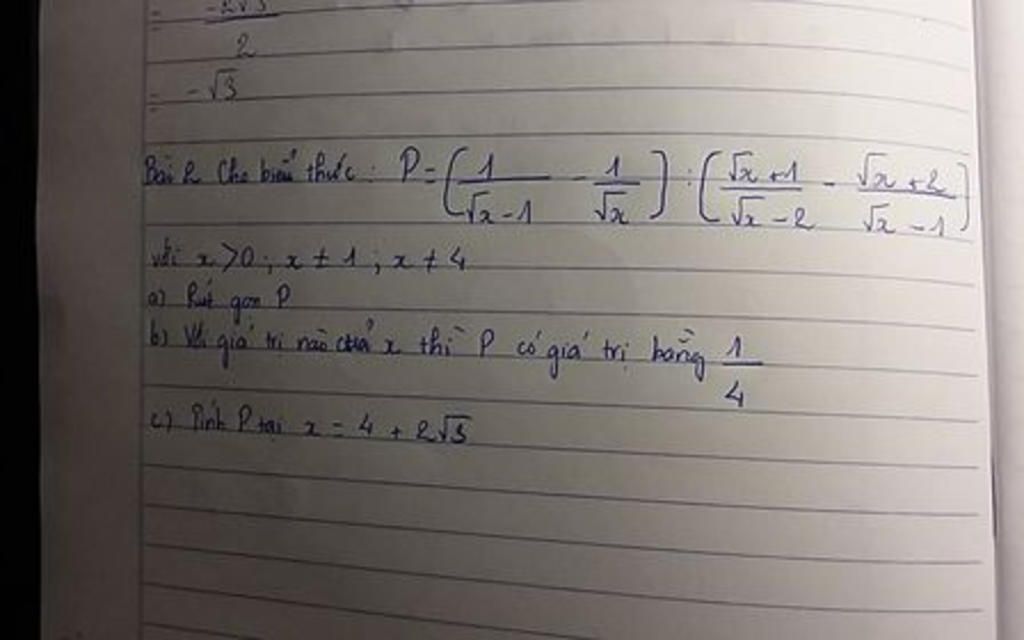 = -2√3 / 2
= -√3
Bài 2 Cho biểu thức: P = (1/(√x - 1) - 1/√x) : ((√x + 1)/(√x - 2) - (√x + 2)/(√x - 1))
với x > 0 ; x ≠ 1 ; x ≠ 4
a) Rút gọn P
b) Với giá trị nào của x thì P có giá trị bằng 1/4
c) Tính P tại x = 4 + 2√3